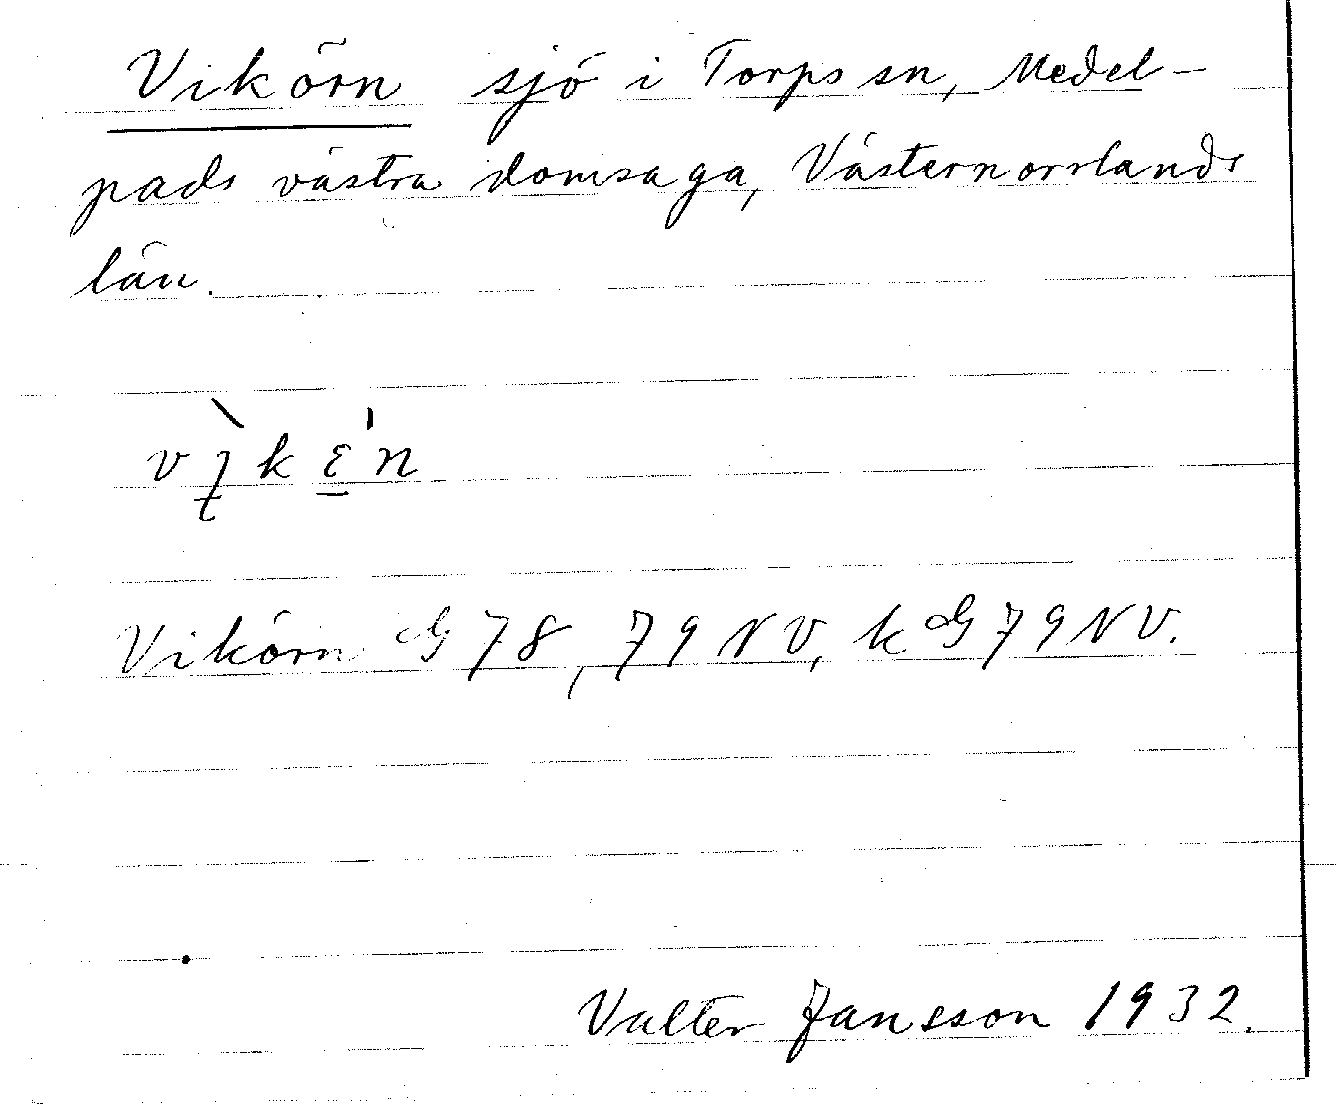 Vikörn sjö i Torps sn, Medel-
pads västra domsaga, Västernorrlands
län.
Vikörn G 78, 79 NV, k G 79 NV.
Valter Jansson 1932.